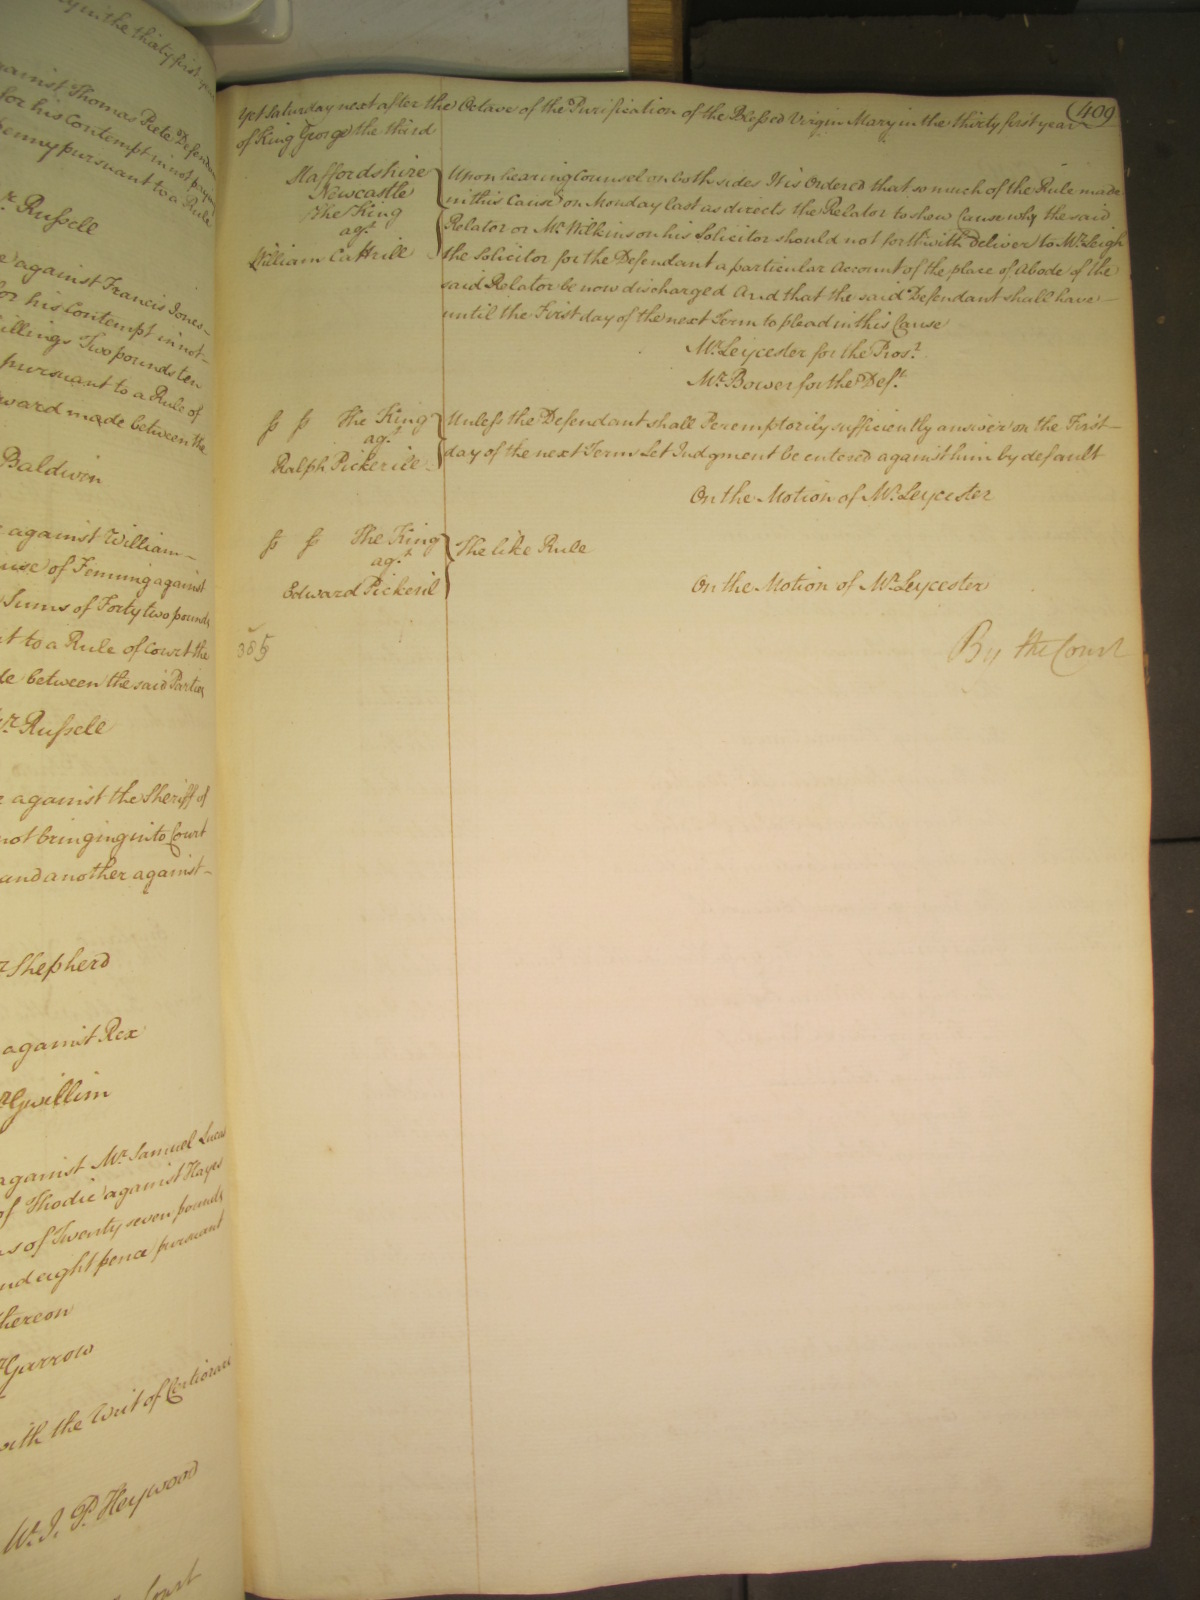 y in the thirty first year
against Thomas Pete Defendant
for his Contempt in not paying
penny pursuant to a Rule
Mr. Russell
against Francis Jones
for his Contempt in not
Shillings Two pounds ten
pursuant to a Rule of
Award made between the
Baldwin
against William
Cause of Fenning against
Sums of Forty two pounds
to a Rule of Court the
between the said Parties
Mr. Russell
against the Sheriff of
not bringing into Court
and another against
Shepherd
against Rex
Gwillim
against Mr. Samuel Lucas
of Thodie against Hayes
of Twenty seven pounds
and eight pence pursuant
thereon
Garrow
with the Writ of Certiorari
W. J. P. Heywood
Court
(409
Yet Saturday next after the Octave of the Purification of the Blessed Virgin Mary in the thirty first year
of King George the third
Staffordshire
Newcastle
The King
agt.
William Cattrill
Upon hearing Counsel on both sides It is Ordered that so much of the Rule made
in this Cause on Monday last as directs the Relator to shew Cause why the said
Relator or Mr. Wilkinson his Solicitor should not forthwith Deliver to Mr. Leigh
the Solicitor for the Defendant a particular Account of the place of Abode of the
said Relator be now discharged And that the said Defendant shall have
until the First day of the next Term to plead in this Cause
Mr. Leycester for the Prosr.
Mr. Bower for the Deft.
ss ss The King
agt.
Ralph Pickerile
Unless the Defendant shall Peremptorily sufficiently answer on the First
day of the next Term Let Judgment be entered against him by default
On the Motion of Mr. Leycester
ss ss The King
agt.
Edward Pickeril
The like Rule
On the Motion of Mr. Leycester
385
By the Court